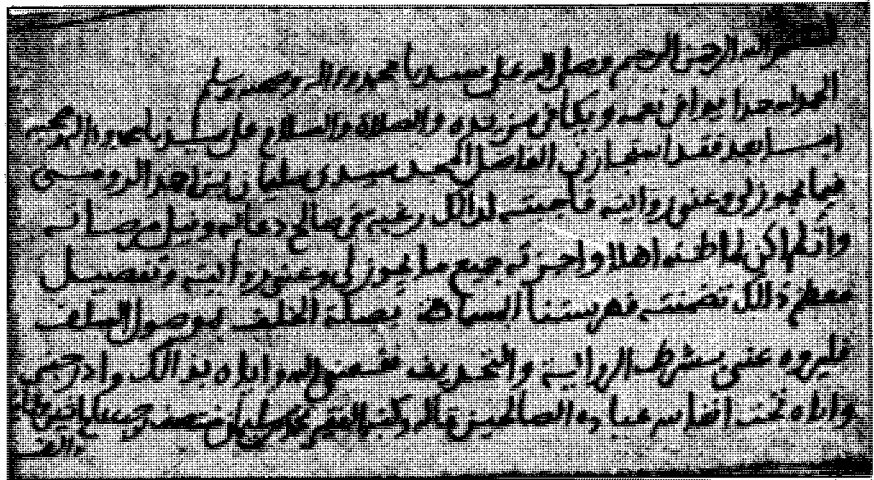 بسم الله الرحمن الرحيم وصلى الله على سيدنا محمد وءاله وصحبه وسلم
الحمد لله حمدا يوافي نعمه ويكافئ مزيده والصلاة والسلام على سيدنا محمد وءاله وصحبه
اما بعد فقد استجازني الفاضل المجد سيدي سليمان بن احمد الرودسي
فيما يجوز لي وعني روايته فأجبته لذالك رغبة في صالح دعائه ونيل مرضاته
وان لم اكن لما ظنه اهلا واجزته جميع ما يجوز لي وعني روايته وتفصيل
معظم ذلك تضمنته فهرستنا المسماة بصلة الخلف بموصول السلف
فليروه عني بشرط الرواية والتحديث نفعني الله واياه بذالك وادرجني
واياه تحت انفاس عباده الصالحين قاله وكتبه الفقير محمد بن سليمان منتصف
والف